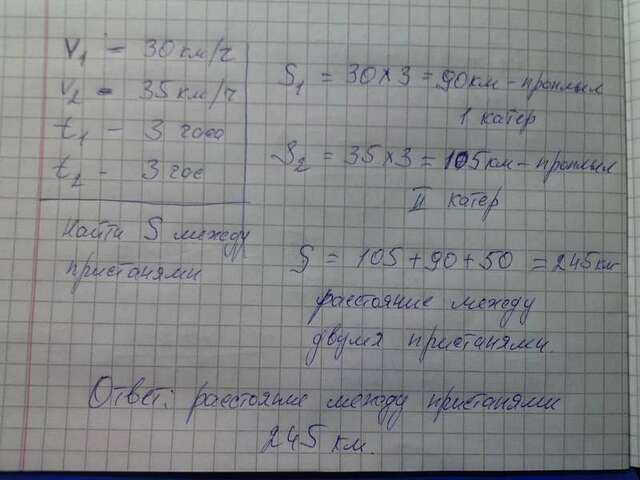 V₁ - 30 км/ч
V₂ - 35 км/ч
t₁ - 3 часа
t₂ - 3 час
Найти S между
пристанями
S₁ = 30 × 3 = 90 км - проплыл
1 катер
S₂ = 35 × 3 = 105 км - проплыл
II катер
S = 105 + 90 + 50 = 245 км
расстояние между
двумя пристанями.
Ответ: расстояние между пристанями
245 км.